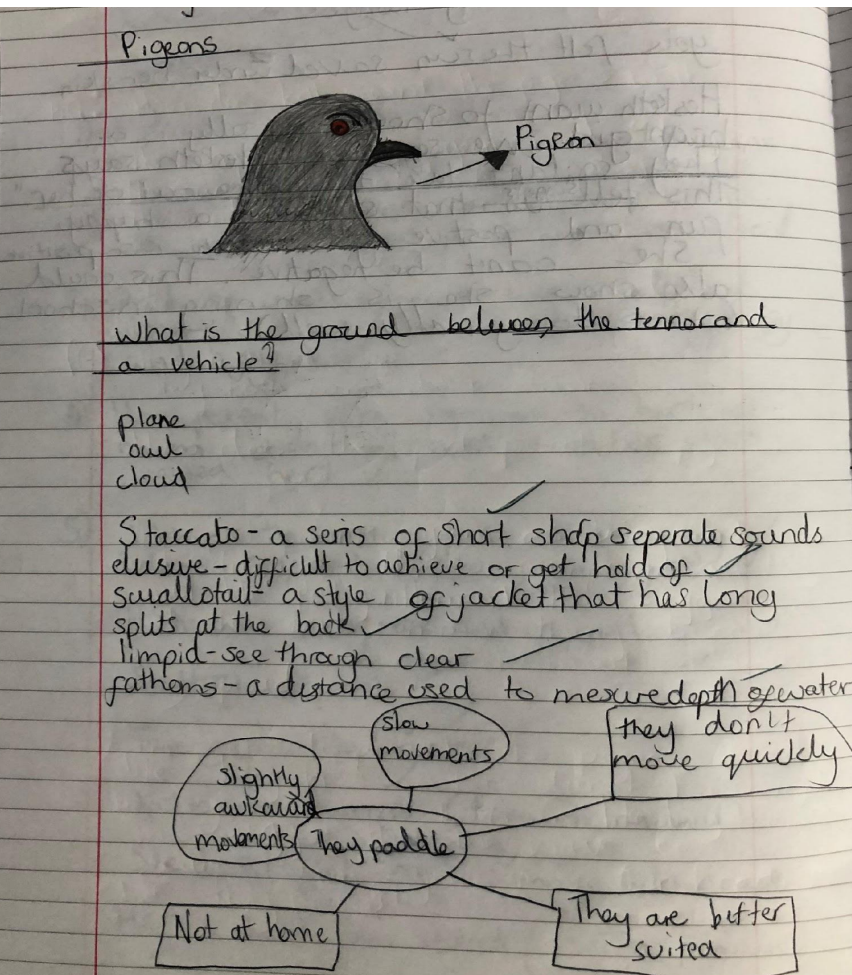 Pigeons
Pigeon
What is the ground between the tennor and
a vehicle?
plane
owl
cloud
Staccato - a seris of short shap seperate sounds
elusive - difficult to achieve or get hold of
swallotail - a style of jacket that has long
splits at the back
limpid - see through clear
fathoms - a distance used to mesure depth of water
slow
movements
they don't
move quickly
slightly
awkward
movements
They paddle
Not at home
They are better
suited